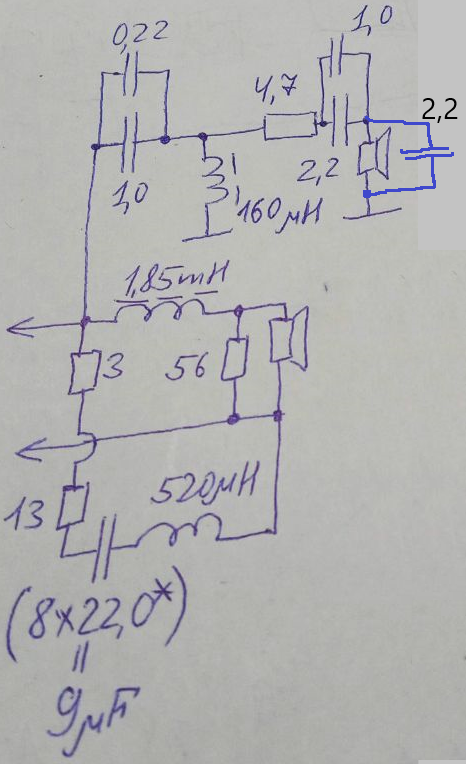 0,22
1,0
4,7
1,0
2,2
2,2
160μH
1,85mH
3
56
13
520μH
(8×22,0*)
=
9μF